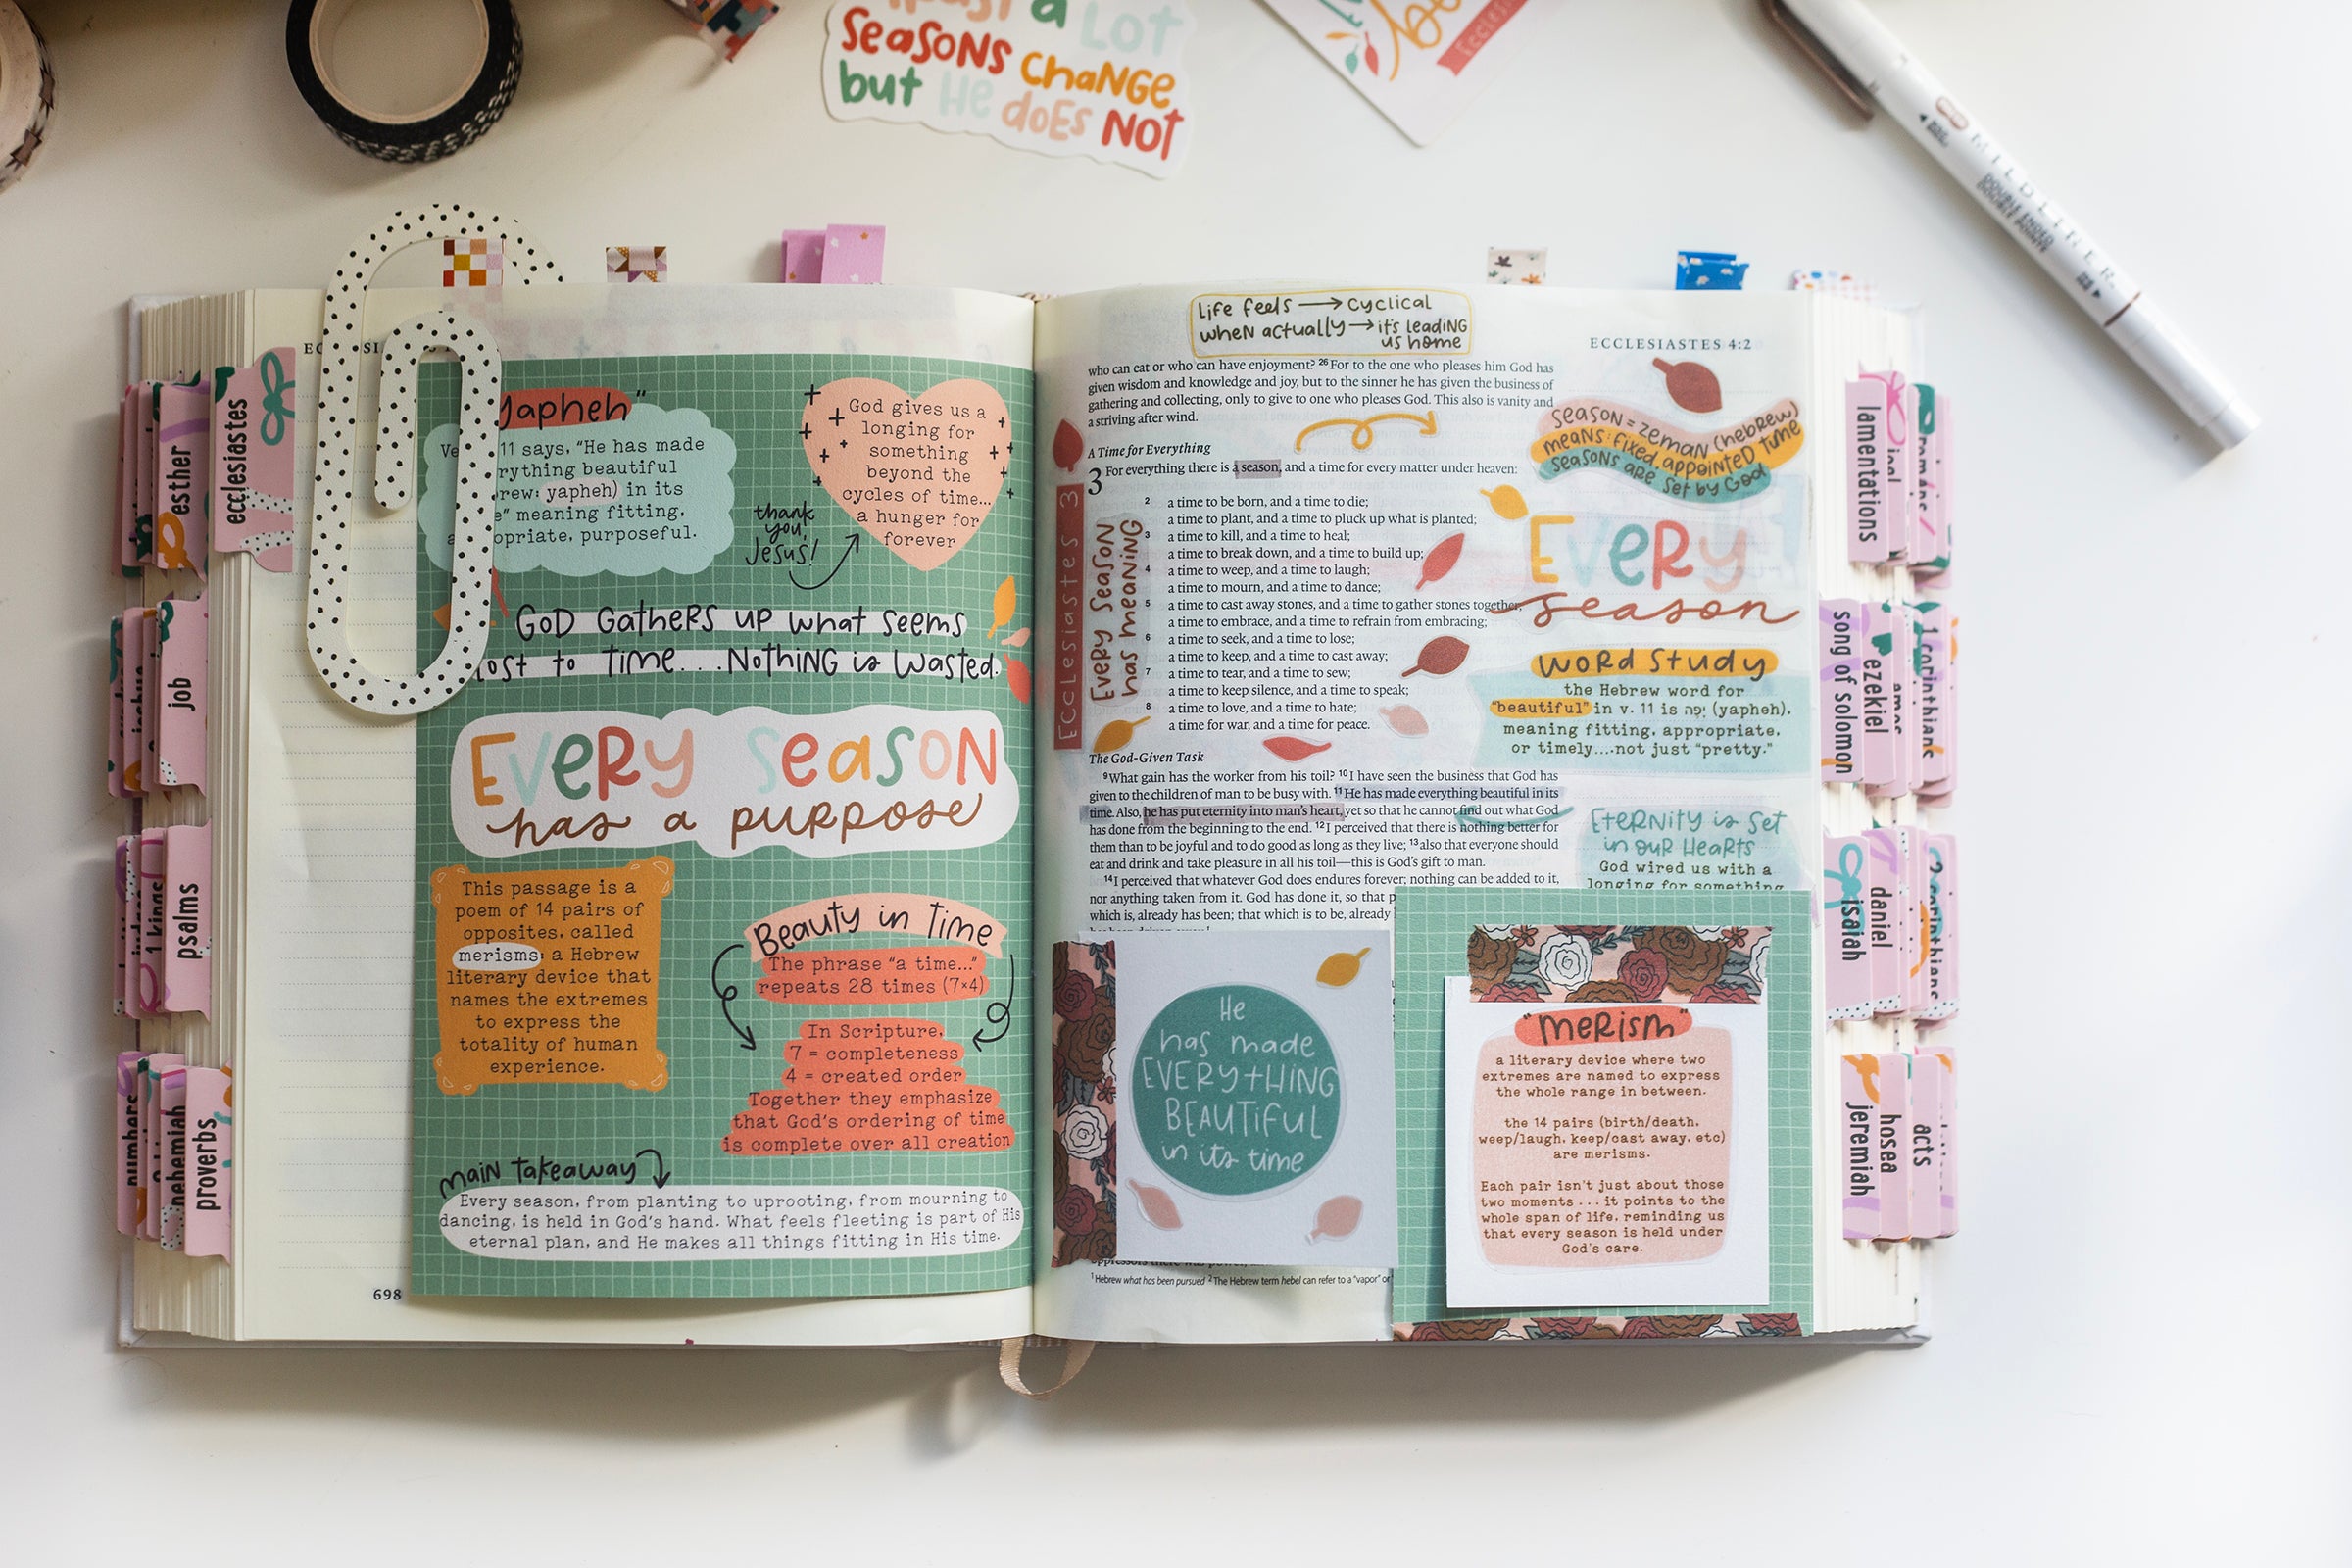 a LOT
SEASONS CHANGE
but He dOES NOT
MILDLINER
ECCLESIASTES
esther
job
psalms
nehemiah
proverbs
numbers
1 kings
"yapheh"
11 says, "He has made
everything beautiful
yapheh) in its
meaning fitting,
purposeful.
God gives us a
longing for
something
beyond the
cycles of time...
a hunger for
forever
thank
you,
Jesus!
GOD GatHERS UP what SEEMS
lost to TIME...NOTHING is WaSTED.
EVERY SEASON
has a PURPOSE
This passage is a
poem of 14 pairs of
opposites, called
merisms: a Hebrew
literary device that
names the extremes
to express the
totality of human
experience.
Beauty in Time
The phrase "a time..."
repeats 28 times (7×4)
In Scripture,
7 = completeness
4 = created order
Together they emphasize
that God's ordering of time
is complete over all creation
main takeaway
Every season, from planting to uprooting, from mourning to
dancing, is held in God's hand. What feels fleeting is part of His
eternal plan, and He makes all things fitting in His time.
698
life feels → cyclical
when actually → it's leading
us home
ECCLESIASTES 4:2
who can eat or who can have enjoyment? 26 For to the one who pleases him God has
given wisdom and knowledge and joy, but to the sinner he has given the business of
gathering and collecting, only to give to one who pleases God. This also is vanity and
a striving after wind.
A Time for Everything
3 For everything there is a season, and a time for every matter under heaven:
2 a time to be born, and a time to die;
a time to plant, and a time to pluck up what is planted;
3 a time to kill, and a time to heal;
a time to break down, and a time to build up;
4 a time to weep, and a time to laugh;
a time to mourn, and a time to dance;
5 a time to cast away stones, and a time to gather stones together;
a time to embrace, and a time to refrain from embracing;
6 a time to seek, and a time to lose;
a time to keep, and a time to cast away;
7 a time to tear, and a time to sew;
a time to keep silence, and a time to speak;
8 a time to love, and a time to hate;
a time for war, and a time for peace.
ECCLESIASTES 3
EVERY SEASON
has meaNING
The God-Given Task
9 What gain has the worker from his toil? 10 I have seen the business that God has
given to the children of man to be busy with. 11 He has made everything beautiful in its
time. Also, he has put eternity into man's heart, yet so that he cannot find out what God
has done from the beginning to the end. 12 I perceived that there is nothing better for
them than to be joyful and to do good as long as they live; 13 also that everyone should
eat and drink and take pleasure in all his toil—this is God's gift to man.
14 I perceived that whatever God does endures forever; nothing can be added to it,
nor anything taken from it. God has done it, so that
which is, already has been; that which is to be, already
SEASON = ZEMAN (hebrew)
means: fixed, appointed time
seasons are set by God
EVERY
season
WORD STUDY
the Hebrew word for
"beautiful" in v. 11 is יפה (yapheh),
meaning fitting, appropriate,
or timely....not just "pretty."
ETERNITY is SET
in OUR HEARTS
God wired us with a
longing for something
He
has made
EVERYTHING
BEAUTIFUL
in its time
"MERISM"
a literary device where two
extremes are named to express
the whole range in between.
the 14 pairs (birth/death,
weep/laugh, keep/cast away, etc)
are merisms.
Each pair isn't just about those
two moments ... it points to the
whole span of life, reminding us
that every season is held under
God's care.
1 Hebrew what has been pursued 2 The Hebrew term hebel can refer to a "vapor" or
ecclesiastes
lamentations
song of solomon
ezekiel
amos
1 corinthians
isaiah
daniel
2 corinthians
jeremiah
hosea
acts
romans